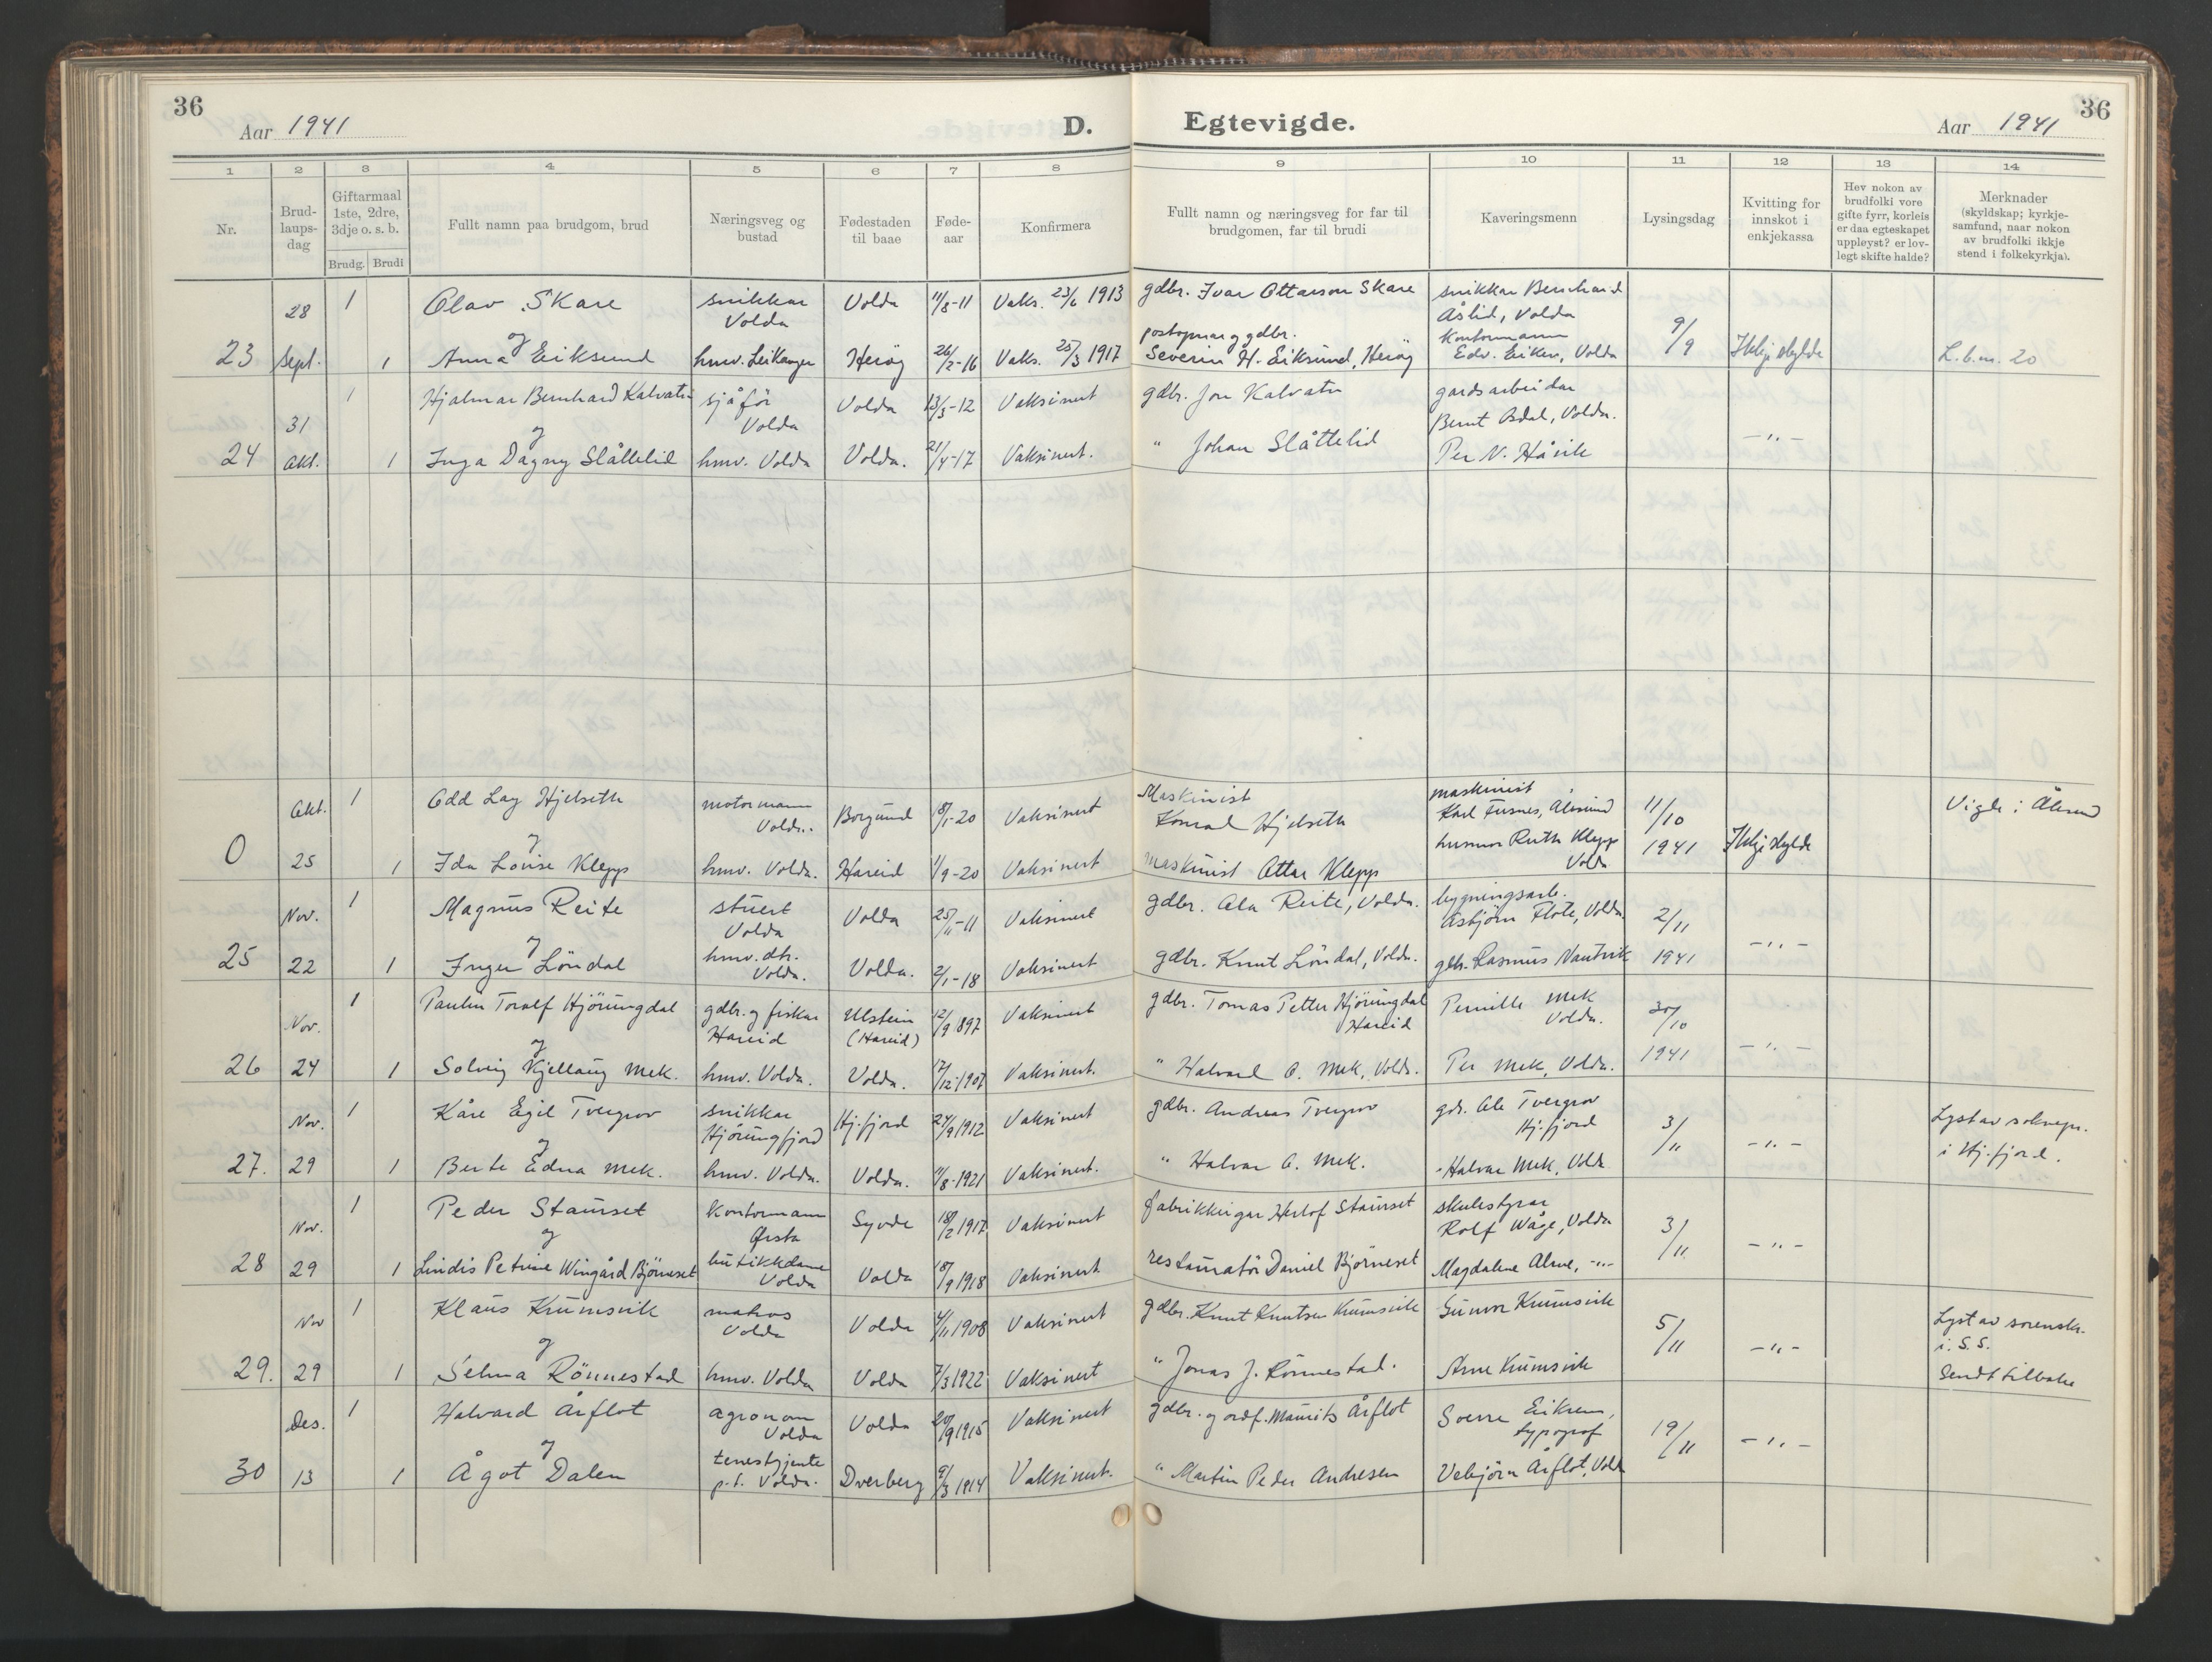 36
Aar 1941
D.
Egtevigde.
Aar 1941
36
1 2 3 4 5 6 7 8 9 10 11 12 13 14
Nr.
Brud-
laups-
dag
Giftarmaal
1ste, 2dre,
3dje o. s. b.
Brudg. Brudi
Fullt namn paa brudgom, brud
Næringsveg og
bustad
Fødestaden
til baae
Føde-
aar
Konfirmera
Fullt namn og næringsveg for far til
brudgomen, far til brudi
Kaveringsmenn
Lysingsdag
Kvitting for
innskot i
enkjekassa
Hev nokon av
brudfolki vore
gifte fyrr, korleis
er daa egteskapet
uppløyst? er lov-
legt skifte halde?
Merknader
(skyldskap; kyrkje-
samfund, naar nokon
av brudfolki ikkje
stend i folkekyrkja).
28 1 Olav Skare snikkar Volda Volda 11/8-11 Vaks. 23/6 1913 gdbr. Ivar Ottarson Skare snikkar Bernhard Åslid, Volda
og
23 Sept. 1 Anna Eiksund hmv. Leikanger Herøy 26/2-16 Vaks. 25/3 1917 postopnar og gdbr. Severin H. Eiksund, Herøy kontormann Edv. Eiken, Volda 9/9 Ikkje skylde L.b.m. 20
31 1 Hjalmar Bernhard Kalvatn sjåfør Volda Volda 13/3-12 Vaksinert gdbr. Jon Kalvatn gardsarbeidar Bernt Osdal, Volda.
og
24 Okt. 1 Inga Dagny Slåttelid hmv. Volda Volda. 21/4-17 Vaksinert. " Johan Slåttelid Per N. Håvik -"-
Okt. 1 Odd Lay Hjelseth motormann Volda. Borgund 18/1-20 Vaksinert Maskinist Konrad Hjelseth maskinist Karl Fusnes, Ålesund 11/10 Vigde i Ålesund
og
0 25 1 Ida Lovise Klepp hmv. Volda. Hareid 1/9-20 Vaksinert maskinist Ottar Klepp husmor Ruth Klepp Volda 1941 Ikkje skylde
Nov. 1 Magnus Reite stuert Volda Volda 25/11-11 Vaksinert gdbr. Ola Reite, Volda. bygningsarb. Asbjørn Flote, Volda 2/11
og
25 22 1 Inger Löndal hmv. dtr. Volda. Volda. 2/1-18 Vaksinert gdbr. Knut Löndal, Volda. gdbr. Rasmus Nautvik 1941 -"-
Nov. 1 Paulin Toralf Hjörungdal gdbr. og fiskar Hareid Ulstein (Hareid) 12/9 1897 Vaksinert gdbr. Tomas Petter Hjörungdal Hareid Pernille Mek Volda. 30/10
og
26 24 1 Solveig Kjellaug Mek. hmv. Volda. Volda. 17/12-1907 Vaksinert. " Halvard O. Mek, Volda. Per Mek, Volda. 1941 -"-
Nov. 1 Kåre Egil Tvergrov snikkar Hjörungfjord Hj.fjord 24/9 1912 Vaksinert gdbr. Andreas Tvergrov gdr. Ole Tvergrov Hj.fjord 3/11 -"- Lyst av soknepr. i Hj.fjord.
og
27. 29 1 Berte Edna Mek. hmv. Volda. Volda. 11/8-1921 Vaksinert. " Halvar O. Mek. " Halvar Mek, Volda
Nov. 1 Peder Staurset kontormann Ørsta Syvde 18/2 1917 Vaksinert fabrikkeigar Herlof Staurset skulestyrar Rolf Wåge, Volda 3/11 -"-
og
28 29 1 Lindis Petrine Wingård Bjørneset butikkdame Volda Volda 18/9 1918 Vaksinert restauratör Daniel Bjørneset Magdalene Alme, -"-
Nov 1 Klaus Krumsvik matros Volda Volda 4/11 1908 Vaksinert gdbr. Knut Knutsen Krumsvik Gunvor Krumsvik 5/11 -"- Lyst av sorenskr. i S.S. Sendt tilbake
og
29. 29 1 Selma Rönnestad hmv. Volda Volda 7/3 1922 Vaksinert " Jonas J. Rönnestad. Arne Krumsvik
Des. 1 Halvard Årflot agronom Volda Volda 20/9 1915 Vaksinert gdbr. og ordf. Maurits Årflot Sverre Eiksen, typograf 19/11 -"-
og
30 13 1 Ågot Dalen tenestgjente p.t. Volda. Dverberg 9/3 1914 Vaksinert. " Martin Peder Andresen Vebjørn Årflot, Volda